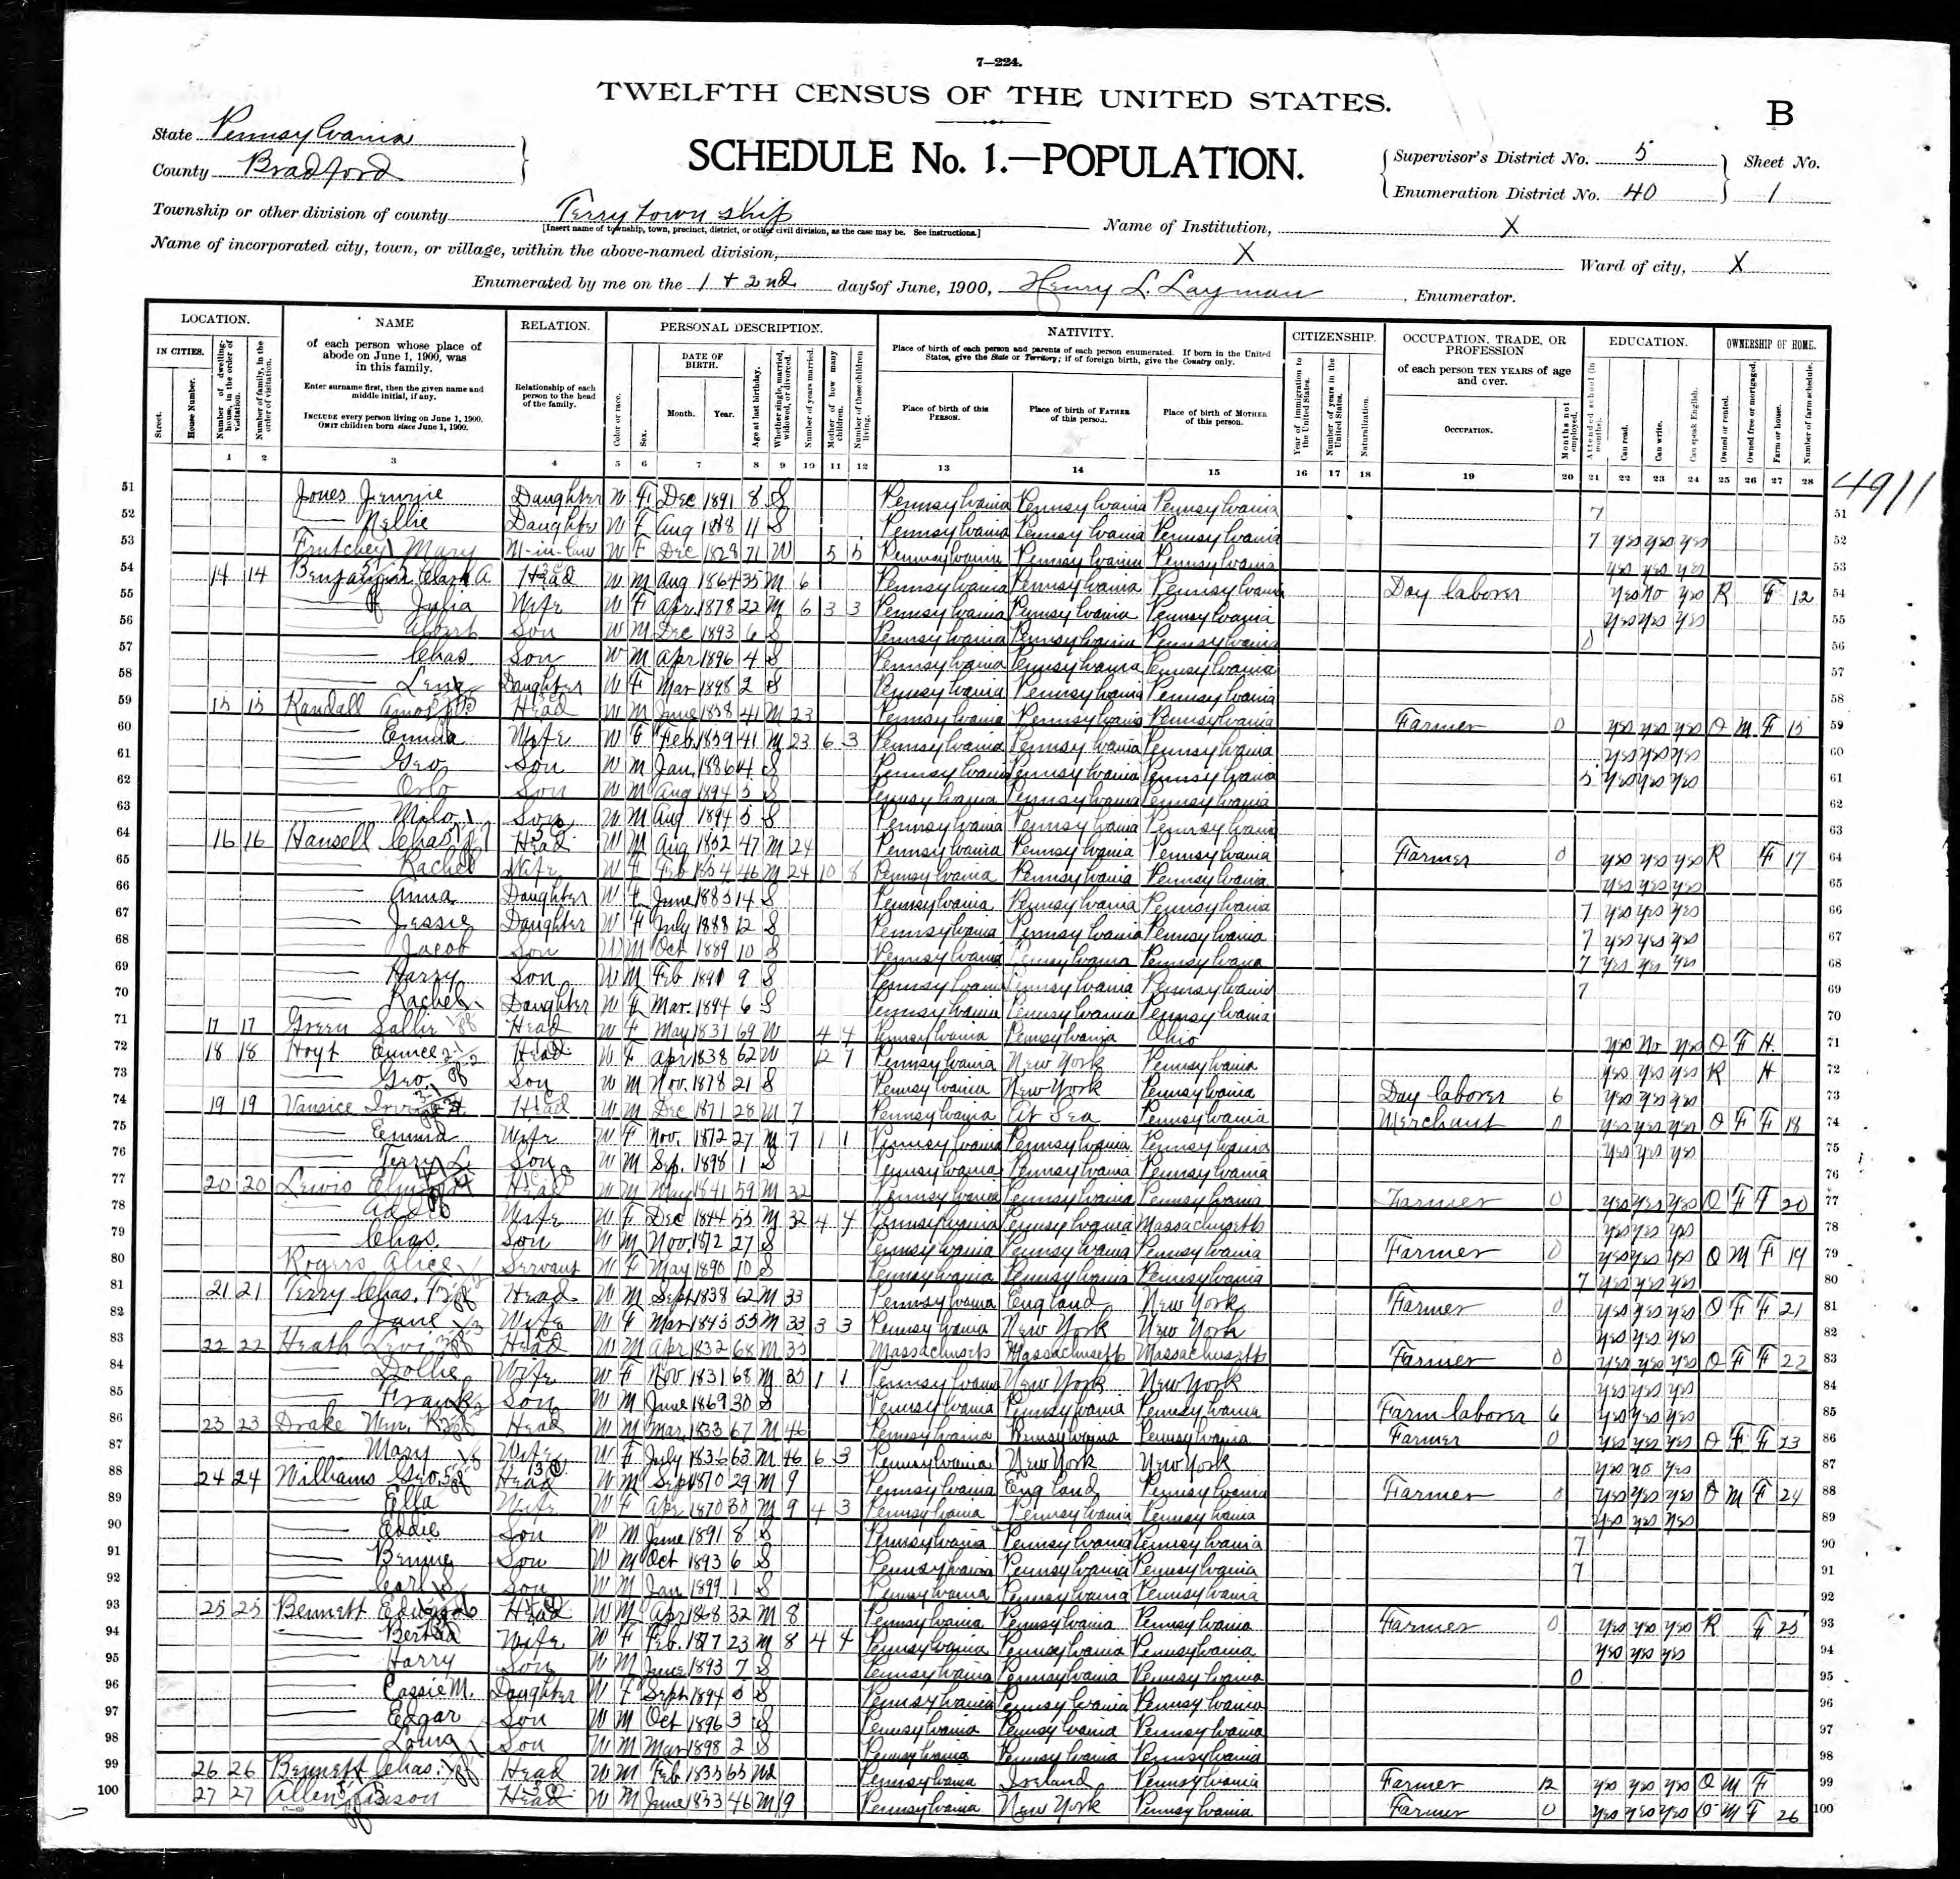 7—224.
TWELFTH CENSUS OF THE UNITED STATES.
B
State Pennsylvania
County Bradford
SCHEDULE No. 1.—POPULATION.
Supervisor's District No. 5 Sheet No.
Enumeration District No. 40 1
Township or other division of county Terry township Name of Institution, X
[Insert name of township, town, precinct, district, or other civil division, as the case may be. See instructions.]
Name of incorporated city, town, or village, within the above-named division, X Ward of city, X
Enumerated by me on the 1 + 2nd days of June, 1900, Henry L. Layman, Enumerator.
LOCATION. NAME RELATION. PERSONAL DESCRIPTION. NATIVITY. CITIZENSHIP. OCCUPATION, TRADE, OR PROFESSION EDUCATION. OWNERSHIP OF HOME.
IN CITIES. Street. House Number. Number of dwelling-house, in the order of visitation. Number of family, in the order of visitation.
of each person whose place of abode on June 1, 1900, was in this family.
Enter surname first, then the given name and middle initial, if any.
INCLUDE every person living on June 1, 1900. OMIT children born since June 1, 1900.
Relationship of each person to the head of the family.
Color or race. Sex. DATE OF BIRTH. Month. Year. Age at last birthday. Whether single, married, widowed, or divorced. Number of years married. Mother of how many children. Number of these children living.
Place of birth of each person and parents of each person enumerated. If born in the United States, give the State or Territory; if of foreign birth, give the Country only.
Place of birth of this PERSON. Place of birth of FATHER of this person. Place of birth of MOTHER of this person.
Year of immigration to the United States. Number of years in the United States. Naturalization.
of each person TEN YEARS of age and over.
OCCUPATION. Months not employed.
Attended school (in months). Can read. Can write. Can speak English.
Owned or rented. Owned free or mortgaged. Farm or house. Number of farm schedule.
1 2 3 4 5 6 7 8 9 10 11 12 13 14 15 16 17 18 19 20 21 22 23 24 25 26 27 28
4911
51 Jones Jennie Daughter W F Dec 1891 8 S Pennsylvania Pennsylvania Pennsylvania 7 51
52 — Nellie Daughter W F Aug 1888 11 S Pennsylvania Pennsylvania Pennsylvania 7 yes yes yes 52
53 Frutchey Mary M-in-law W F Dec 1828 71 W 5 5 Pennsylvania Pennsylvania Pennsylvania yes yes yes 53
54 14 14 Benjamin Clark A Head W M Aug 1864 35 M 6 Pennsylvania Pennsylvania Pennsylvania Day laborer yes no yes R F 12 54
55 — Julia Wife W F Apr 1878 22 M 6 3 3 Pennsylvania Pennsylvania Pennsylvania yes yes yes 55
56 — Albert Son W M Dec 1893 6 S Pennsylvania Pennsylvania Pennsylvania 0 56
57 — Chas Son W M Apr 1896 4 S Pennsylvania Pennsylvania Pennsylvania 57
58 — Lena Daughter W F Mar 1898 2 S Pennsylvania Pennsylvania Pennsylvania 58
59 15 15 Randall Amos Head W M June 1858 41 M 23 Pennsylvania Pennsylvania Pennsylvania Farmer 0 yes yes yes O M F 15 59
60 — Emma Wife W F Feb 1859 41 M 23 6 3 Pennsylvania Pennsylvania Pennsylvania yes yes yes 60
61 — Geo Son W M Jan 1886 14 S Pennsylvania Pennsylvania Pennsylvania 5 yes yes yes 61
62 — Orlo Son W M Aug 1894 5 S Pennsylvania Pennsylvania Pennsylvania 62
63 — Milo Son W M Aug 1894 5 S Pennsylvania Pennsylvania Pennsylvania 63
64 16 16 Hansell Chas Head W M Aug 1852 47 M 24 Pennsylvania Pennsylvania Pennsylvania Farmer 0 yes yes yes R F 17 64
65 — Rachel Wife W F Feb 1854 46 M 24 10 8 Pennsylvania Pennsylvania Pennsylvania yes yes yes 65
66 — Anna Daughter W F June 1885 14 S Pennsylvania Pennsylvania Pennsylvania 7 yes yes yes 66
67 — Jessie Daughter W F July 1888 12 S Pennsylvania Pennsylvania Pennsylvania 7 yes yes yes 67
68 — Jacob Son W M Oct 1889 10 S Pennsylvania Pennsylvania Pennsylvania 7 yes yes yes 68
69 — Harry Son W M Feb 1891 9 S Pennsylvania Pennsylvania Pennsylvania 7 69
70 — Rachel Daughter W F Mar. 1894 6 S Pennsylvania Pennsylvania Pennsylvania 70
71 17 17 Green Sallie Head W F May 1831 69 W 4 4 Pennsylvania Pennsylvania Ohio yes No yes O F H 71
72 18 18 Hoyt Eunice Head W F Apr 1838 62 W 12 7 Pennsylvania New York Pennsylvania yes yes yes R H 72
73 — Geo. Son W M Nov. 1878 21 S Pennsylvania New York Pennsylvania Day laborer 6 yes yes yes 73
74 19 19 Vansice Irving Head W M Dec 1871 28 M 7 Pennsylvania At Sea Pennsylvania Merchant 0 yes yes yes O F F 18 74
75 — Emma Wife W F Nov. 1872 27 M 7 1 1 Pennsylvania Pennsylvania Pennsylvania yes yes yes 75
76 — Terry L. Son W M Sep. 1898 1 S Pennsylvania Pennsylvania Pennsylvania 76
77 20 20 Lewis Head W M May 1841 59 M 32 Pennsylvania Pennsylvania Pennsylvania Farmer 0 yes yes yes O F F 20 77
78 — Wife W F Dec 1844 55 M 32 4 4 Pennsylvania Pennsylvania Massachusetts yes yes yes 78
79 — Chas. Son W M Nov. 1872 27 S Pennsylvania Pennsylvania Pennsylvania Farmer 0 yes yes yes O M F 19 79
80 Rogers Alice Servant W F May 1890 10 S Pennsylvania Pennsylvania Pennsylvania 7 yes yes yes 80
81 21 21 Terry Chas. F Head W M Sept 1838 62 M 33 Pennsylvania England New York Farmer 0 yes yes yes O F F 21 81
82 — Jane Wife W F Mar 1843 55 M 33 3 3 Pennsylvania New York New York yes yes yes 82
83 22 22 Heath Levi Head W M Apr 1832 68 M 35 Massachusets Massachusetts Massachusetts Farmer 0 yes yes yes O F F 22 83
84 — Dollie Wife W F Nov 1831 68 M 35 1 1 Pennsylvania New York New York yes yes yes 84
85 — Frank Son W M June 1869 30 S Pennsylvania Pennsylvania Pennsylvania Farm laborer 6 yes yes yes 85
86 23 23 Drake Wm. R Head W M Mar. 1833 67 M 46 Pennsylvania Pennsylvania Pennsylvania Farmer 0 yes yes yes O F F 23 86
87 — Mary Wife W F July 1836 63 M 46 6 3 Pennsylvania New York New York yes no yes 87
88 24 24 Williams Geo. S Head W M Sept 1870 29 M 9 Pennsylvania England Pennsylvania Farmer 0 yes yes yes O M F 24 88
89 — Ella Wife W F Apr 1870 30 M 9 4 3 Pennsylvania Pennsylvania Pennsylvania yes yes yes 89
90 — Eddie Son W M June 1891 8 S Pennsylvania Pennsylvania Pennsylvania 7 90
91 — Bennie Son W M Oct 1893 6 S Pennsylvania Pennsylvania Pennsylvania 7 91
92 — Carl S Son W M Jan 1899 1 S Pennsylvania Pennsylvania Pennsylvania 92
93 25 25 Bennett Edward Head W M Apr 1868 32 M 8 Pennsylvania Pennsylvania Pennsylvania Farmer 0 yes yes yes R F 25 93
94 — Bertha Wife W F Feb. 1877 23 M 8 4 4 Pennsylvania Pennsylvania Pennsylvania yes yes yes 94
95 — Harry Son W M June 1893 7 S Pennsylvania Pennsylvania Pennsylvania 0 95
96 — Cassie M. Daughter W F Sept 1894 5 S Pennsylvania Pennsylvania Pennsylvania 96
97 — Edgar Son W M Oct 1896 3 S Pennsylvania Pennsylvania Pennsylvania 97
98 — Son W M Mar 1898 2 S Pennsylvania Pennsylvania Pennsylvania 98
99 26 26 Bennett Chas. Head W M Feb 1835 65 Wd Pennsylvania Ireland Pennsylvania Farmer 12 yes yes yes O M F 99
100 27 27 Allen Head W M June 1853 46 M 9 Pennsylvania New York Pennsylvania Farmer 0 yes yes yes O M F 26 100